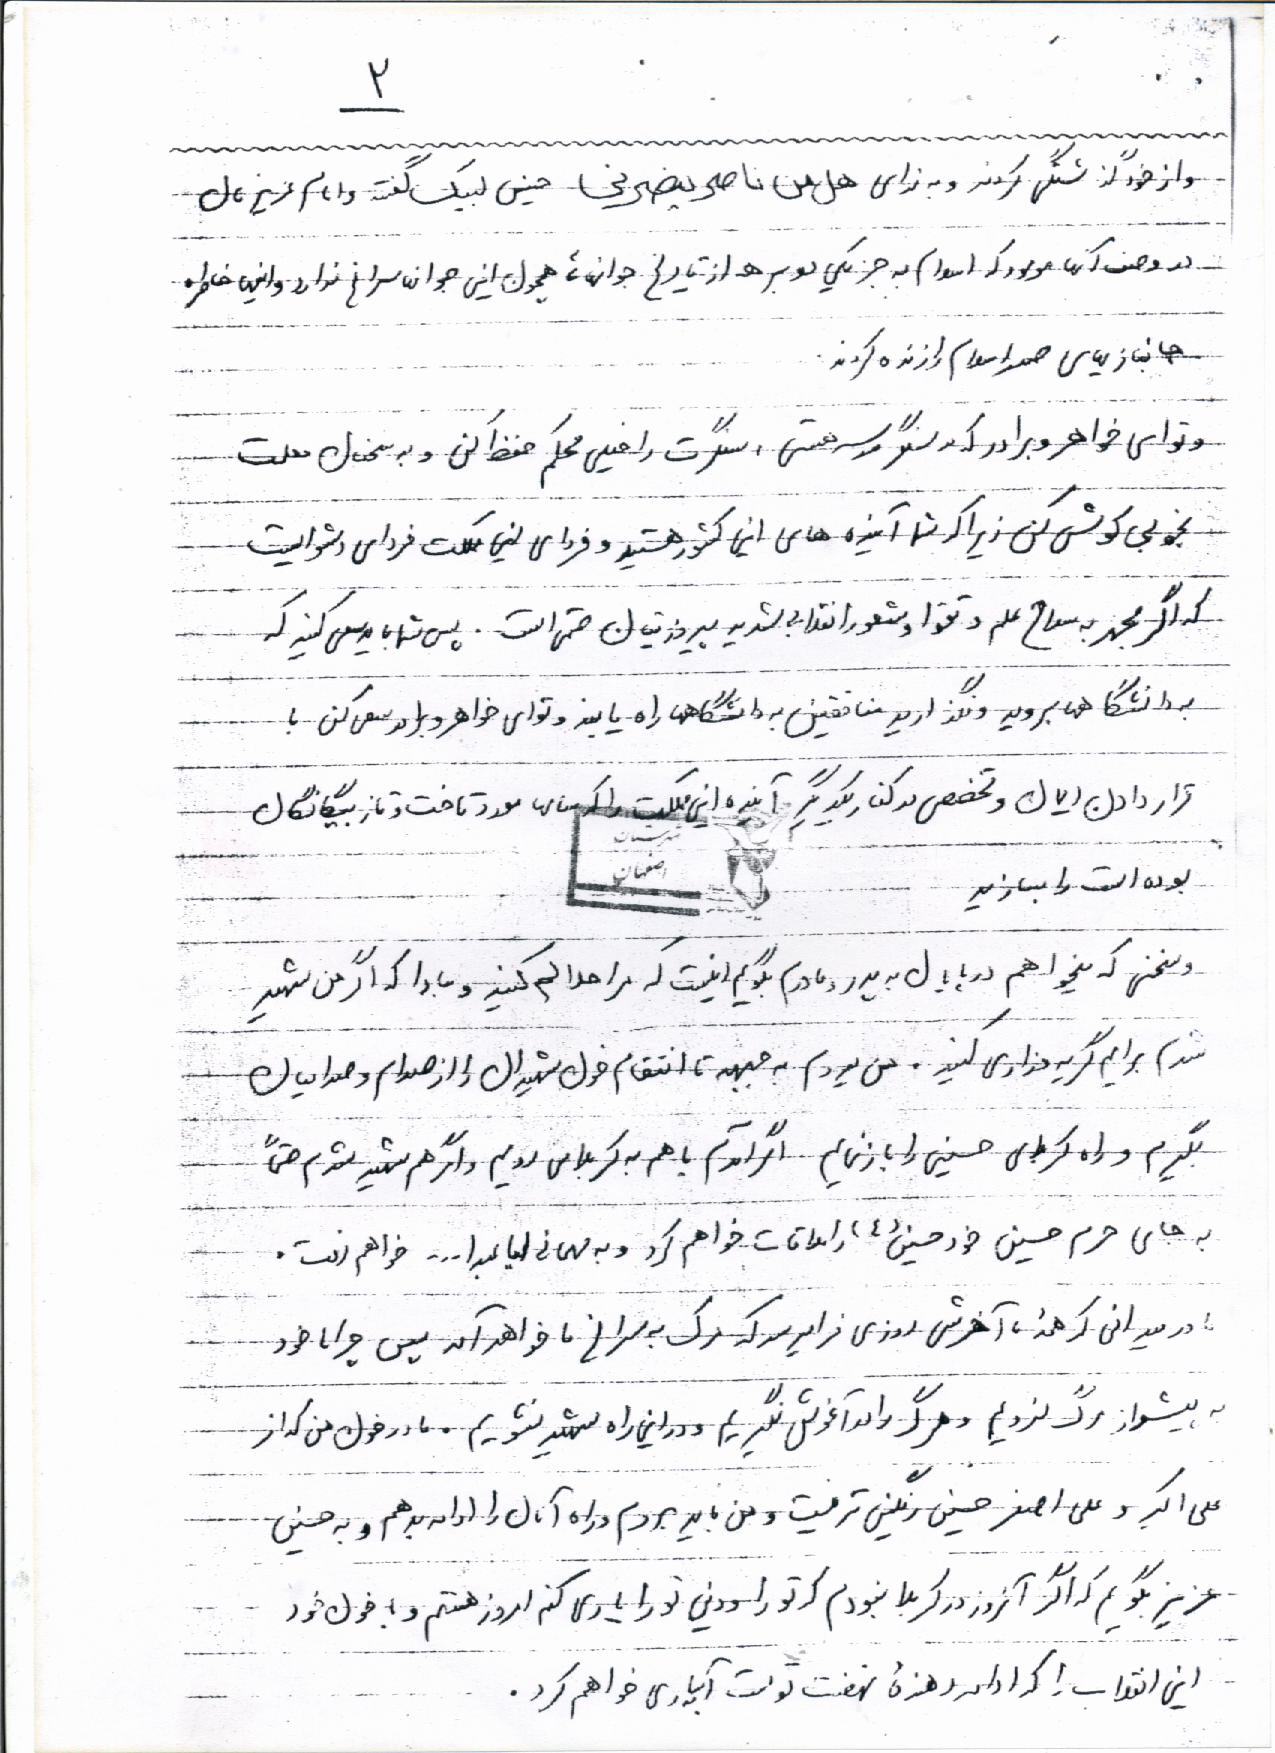 ۲
و از خود گذشتگی کردند و به ندای هل من ناصر ینصرنی حسین لبیک گفتند و امام عزیزمان
در وصف آنها فرمود که اسلام به جز یکی دو برهه از تاریخ جوانانی همچون این جوانان سراغ ندارد و اینها خاطره
جانبازیهای صدر اسلام را زنده کردند.
و تو ای خواهر و برادر که در سنگر مدرسه هستی، سنگرت را خیلی محکم حفظ کن و به سخنان معلمت
بخوبی کوشش کن زیرا که شما آینده های این کشور هستید و فردای این مملکت فردای دشواریست
که اگر مجهز به سلاح علم و تقوا و شعور انقلابی شدید پیروزیتان حتمی است. پس شما باید سعی کنید که
به دانشگاهها بروید و نگذارید منافقین به دانشگاهها راه یابند و تو ای خواهر و برادر سعی کن با
قرار دادن ایمان و تخصص در کنار یکدیگر آینده این مملکت را که سالها مورد تاخت و تاز بیگانگان
شهرستان
اصفهان
بوده است را بسازید
و سخنی که میخواهم در پایان به پدر و مادرم بگویم اینست که مرا حلالم کنید و مبادا که اگر من شهید
شدم برایم گریه و زاری کنید. من میروم به جبهه تا انتقام خون شهیدان را از صدام و صدامیان
بگیرم و راه کربلای حسینی را باز نمایم اگر آمدم با هم به کربلا می رویم و اگر هم شهید شدم حتماً
به جای حرم حسین خود حسین (ع) را ملاقات خواهم کرد و به مهمانی اباعبدا... خواهم رفت.
مادر میدانی که همه ما آخرش روزی فرا میرسد که مرگ به سراغ ما خواهد آمد پس چرا ما خود
به پیشواز مرگ نرویم و مرگ را در آغوش نگیریم و در این راه شهید نشویم. مادر خون من که از
علی اکبر و علی اصغر حسین رنگین تر نیست و من باید بروم و راه آنان را ادامه بدهم و به حسین
عزیز بگویم که اگر آنروز در کربلا نبودم که تو را یاری کنم امروز هستم و با خون خود
این انقلاب را که ادامه دهندۀ نهضت توست آبیاری خواهم کرد.